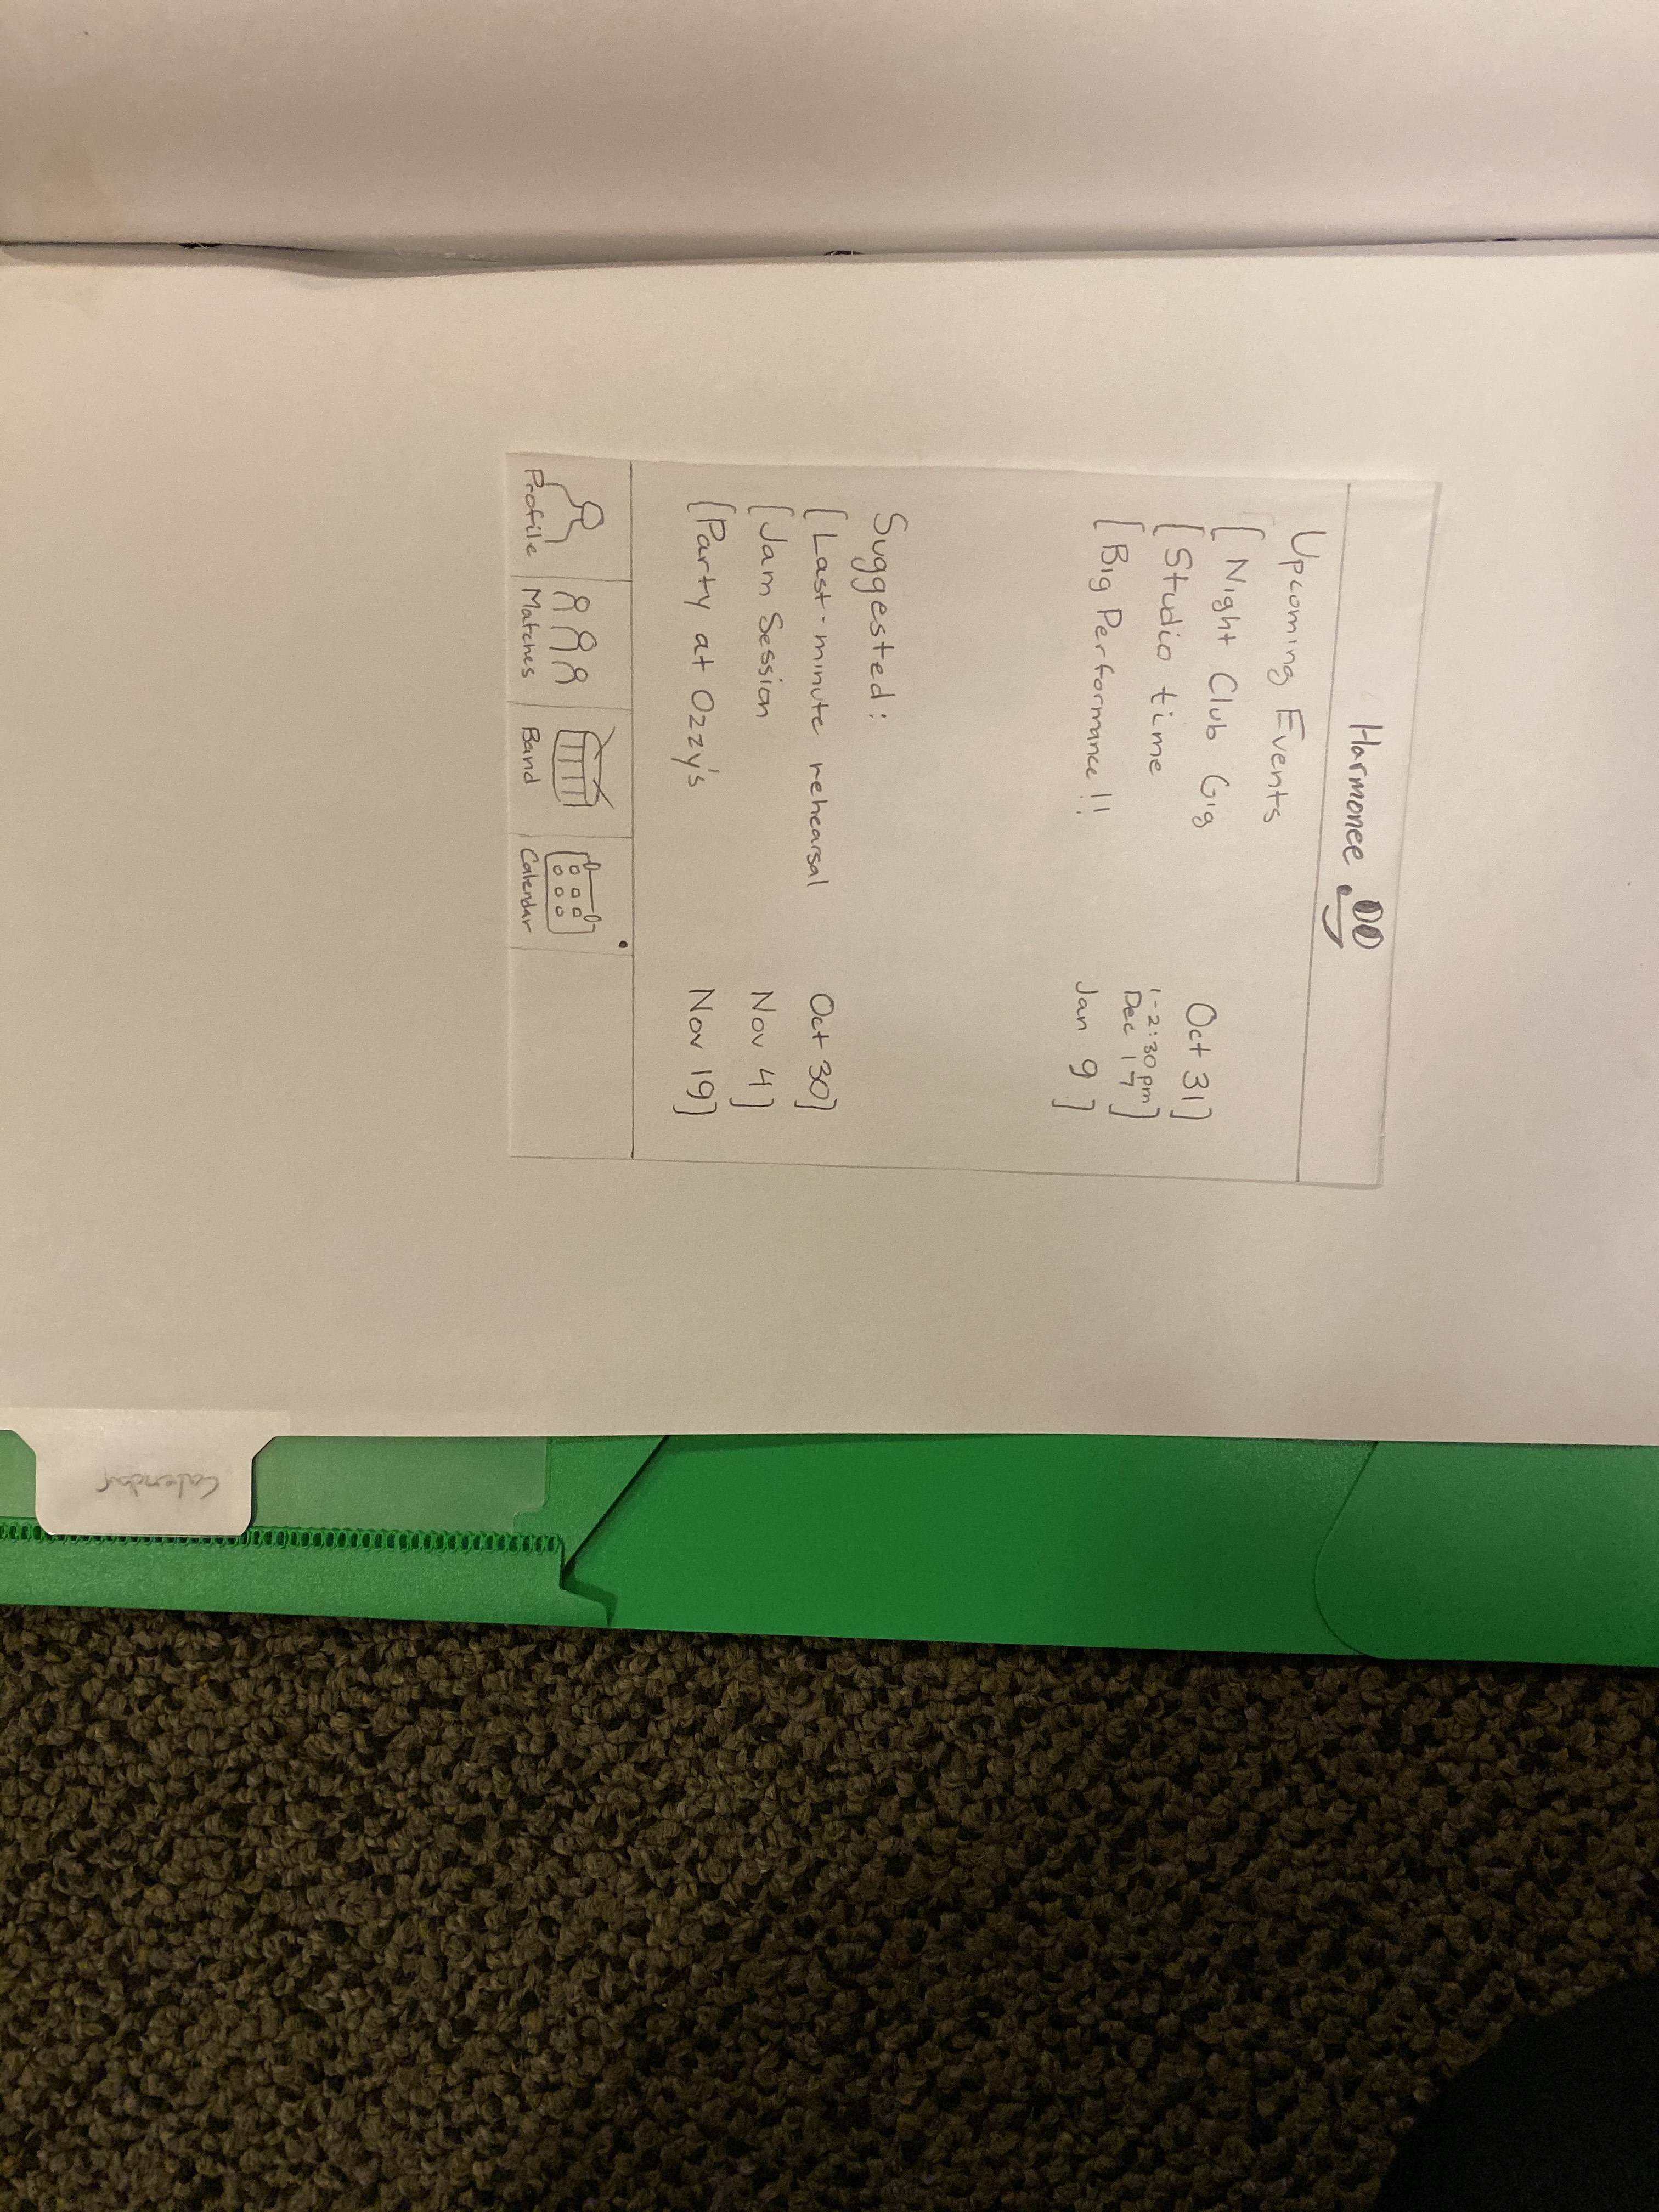 Harmonee
Upcoming Events
[Night Club Gig Oct 31]
[Studio time 1-2:30pm
Dec 17]
[Big Performance!! Jan 9]
Suggested:
[Last-minute rehearsal Oct 30]
[Jam Session Nov 4]
[Party at Ozzy's Nov 19]
Profile Matches Band Calendar
Calendar